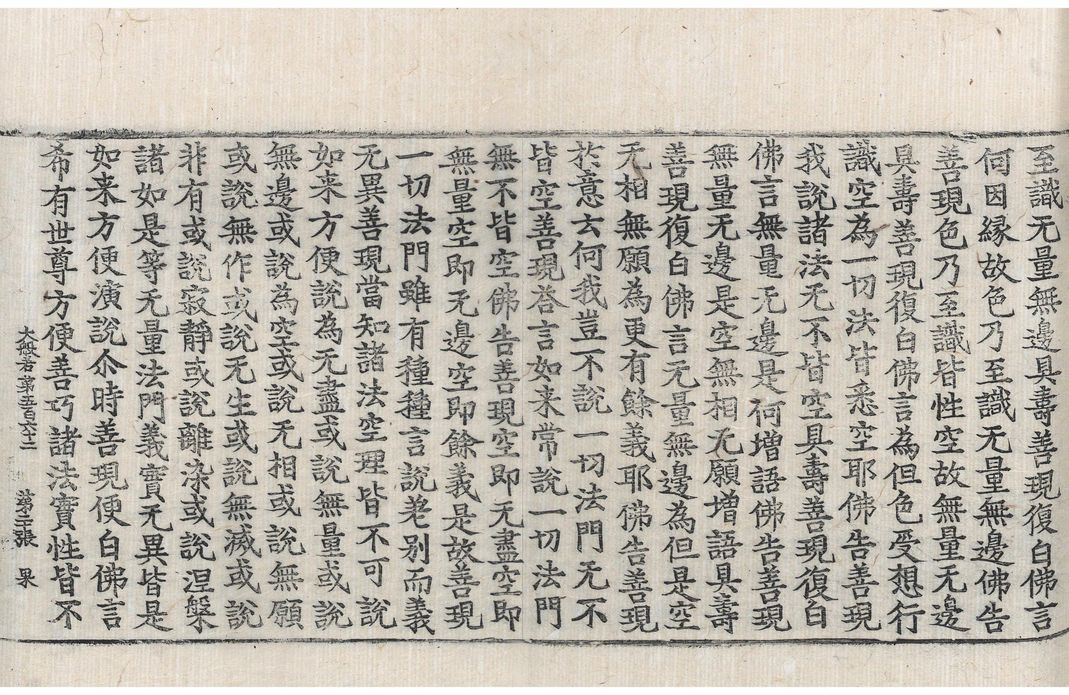 至識无量無邊具壽善現復白佛言
何因縁故色乃至識无量無邊佛告
善現色乃至識皆性空故無量无邊
具壽善現復白佛言為但色受想行
識空為一切法皆悉空耶佛告善現
我說諸法无不皆空具壽善現復白
佛言無量无邊是何增語佛告善現
無量无邊是空無相无願增語具壽
善現復白佛言无量無邊為但是空
无相無願為更有餘義耶佛告善現
於意云何我豈不說一切法門无不
皆空善現荅言如来常說一切法門
無不皆空佛告善現空即无盡空即
無量空即无邊空即餘義是故善現
一切法門雖有種種言說差別而義
无異善現當知諸法空理皆不可說
如来方便說為无盡或說無量或說
無邊或說為空或說无相或說無願
或說無作或說无生或說無滅或說
非有或說寂靜或說離染或說涅槃
諸如是等无量法門義實无異皆是
如来方便演說尒時善現便白佛言
希有世尊方便善巧諸法實性皆不
大般若第五百六十二 第二張 果